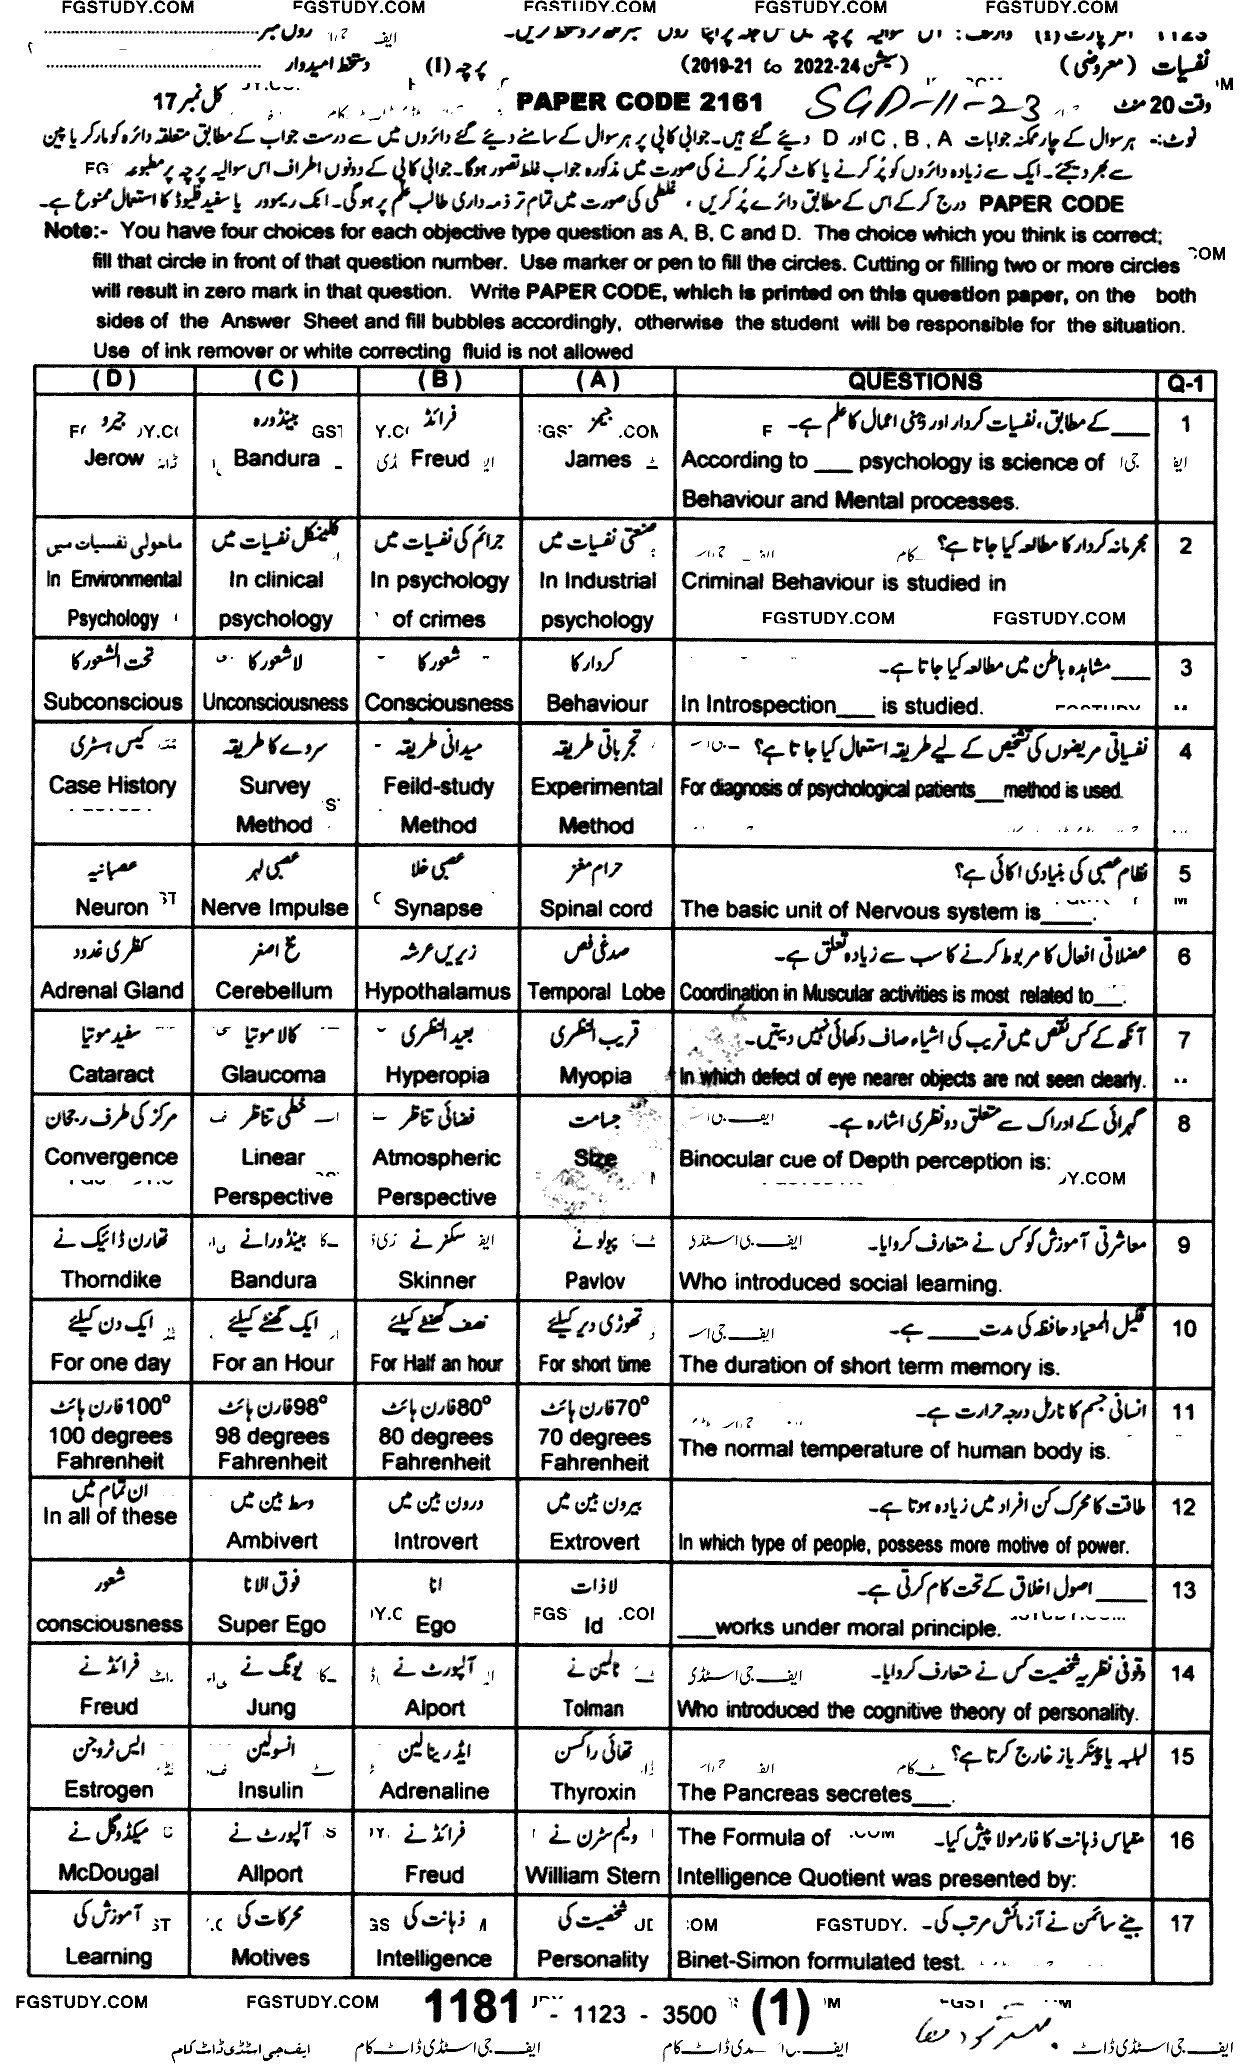 FGSTUDY.COM FGSTUDY.COM FGSTUDY.COM FGSTUDY.COM FGSTUDY.COM
رول نمبر
نفسیات (معروضی) (سیشن 2022-24 to 2019-21) پرچہ (I) دستخط امیدوار
وقت 20 منٹ SGD-11-23 PAPER CODE 2161 کل نمبر 17
نوٹ:- ہر سوال کے چار ممکنہ جوابات A ، B ، C اور D دیئے گئے ہیں۔ جوابی کاپی پر ہر سوال کے سامنے دیئے گئے دائروں میں سے درست جواب کے مطابق متعلقہ دائرہ کو مارکر یا پین
سے بھر دیجئے۔ ایک سے زیادہ دائروں کو پُر کرنے یا کاٹ کر پُر کرنے کی صورت میں مذکورہ جواب غلط تصور ہوگا۔ جوابی کاپی کے دونوں اطراف اس سوالیہ پرچہ پر مطبوعہ
PAPER CODE درج کرکے اس کے مطابق دائرے پُر کریں، غلطی کی صورت میں تمام تر ذمہ داری طالب علم پر ہوگی۔ انک ریموور یا سفید فلیوڈ کا استعمال ممنوع ہے۔
Note:- You have four choices for each objective type question as A, B, C and D. The choice which you think is correct;
fill that circle in front of that question number. Use marker or pen to fill the circles. Cutting or filling two or more circles
will result in zero mark in that question. Write PAPER CODE, which is printed on this question paper, on the both
sides of the Answer Sheet and fill bubbles accordingly, otherwise the student will be responsible for the situation.
Use of ink remover or white correcting fluid is not allowed
(D) (C) (B) (A) QUESTIONS Q-1
جیرو بینڈورہ فرائڈ جیمز ___ کے مطابق، نفسیات کردار اور ذہنی اعمال کا علم ہے۔ 1
Jerow Bandura Freud James According to ___ psychology is science of
Behaviour and Mental processes.
ماحولی نفسیات میں کلینکل نفسیات میں جرائم کی نفسیات میں صنعتی نفسیات میں مجرمانہ کردار کا مطالعہ کیا جاتا ہے؟ 2
In Environmental In clinical In psychology In Industrial Criminal Behaviour is studied in
Psychology psychology of crimes psychology FGSTUDY.COM FGSTUDY.COM
تحت الشعور کا لاشعور کا شعور کا کردار کا ___ مشاہدہ باطن میں مطالعہ کیا جاتا ہے۔ 3
Subconscious Unconsciousness Consciousness Behaviour In Introspection___ is studied.
کیس ہسٹری سروے کا طریقہ میدانی طریقہ تجرباتی طریقہ نفسیاتی مریضوں کی تشخیص کے لیے طریقہ استعمال کیا جاتا ہے؟ 4
Case History Survey Feild-study Experimental For diagnosis of psychological patients___method is used.
Method Method Method
عصبانیہ عصبی لہر عصبی خلا حرام مغز نظام عصبی کی بنیادی اکائی ہے؟ 5
Neuron Nerve Impulse Synapse Spinal cord The basic unit of Nervous system is____.
کظری غدود مخ اصغر زیریں عرشہ صدغی لحص عضلاتی افعال کا مربوط کرنے کا سب سے زیادہ تعلق ہے۔ 6
Adrenal Gland Cerebellum Hypothalamus Temporal Lobe Coordination in Muscular activities is most related to___.
سفید موتیا کالا موتیا بعید النظری قریب النظری آنکھ کے کس نقص میں قریب کی اشیاء صاف دکھائی نہیں دیتیں۔ 7
Cataract Glaucoma Hyperopia Myopia In which defect of eye nearer objects are not seen clearly.
مرکز کی طرف رجحان خطی تناظر فضائی تناظر جسامت گہرائی کے ادراک سے متعلق دو نظری اشارہ ہے۔ 8
Convergence Linear Atmospheric Size Binocular cue of Depth perception is:
Perspective Perspective
تھارن ڈائیک نے بینڈورا نے سکنر نے پولو نے معاشرتی آموزش کو کس نے متعارف کروایا۔ 9
Thorndike Bandura Skinner Pavlov Who introduced social learning.
ایک دن کیلئے ایک گھنٹے کیلئے نصف گھنٹے کیلئے تھوڑی دیر کیلئے قلیل المعیاد حافظہ کی مدت ____ ہے۔ 10
For one day For an Hour For Half an hour For short time The duration of short term memory is.
100° فارن ہائٹ 98° فارن ہائٹ 80° فارن ہائٹ 70° فارن ہائٹ انسانی جسم کا نارمل درجہ حرارت ہے۔ 11
100 degrees 98 degrees 80 degrees 70 degrees The normal temperature of human body is.
Fahrenheit Fahrenheit Fahrenheit Fahrenheit
ان تمام میں وسط بین میں درون بین میں بیرون بین میں طاقت کا محرک کن افراد میں زیادہ ہوتا ہے۔ 12
In all of these Ambivert Introvert Extrovert In which type of people, possess more motive of power.
شعور فوق الانا انا لاذات ____ اصول اخلاق کے تحت کام کرتی ہے۔ 13
consciousness Super Ego Ego Id ___works under moral principle.
فرائڈ نے یونگ نے آلپورٹ نے ٹالمین نے وقوفی نظریہ شخصیت کس نے متعارف کروایا۔ 14
Freud Jung Alport Tolman Who introduced the cognitive theory of personality.
ایس ٹروجن انسولین ایڈرینالین تھائی راکسن لبلبہ یا پینکریاز خارج کرتا ہے؟ 15
Estrogen Insulin Adrenaline Thyroxin The Pancreas secretes___.
میکڈوگل نے آلپورٹ نے فرائڈ نے ولیم سٹرن نے The Formula of مقیاس ذہانت کا فارمولا پیش کیا۔ 16
McDougal Allport Freud William Stern Intelligence Quotient was presented by:
آموزش کی محرکات کی ذہانت کی شخصیت کی بینے سائمن نے آزمائش مرتب کی۔ 17
Learning Motives Intelligence Personality Binet-Simon formulated test.
FGSTUDY.COM FGSTUDY.COM 1181 - 1123 - 3500 (1)
ایف جی اسٹڈی ڈاٹ کام ایف جی اسٹڈی ڈاٹ کام